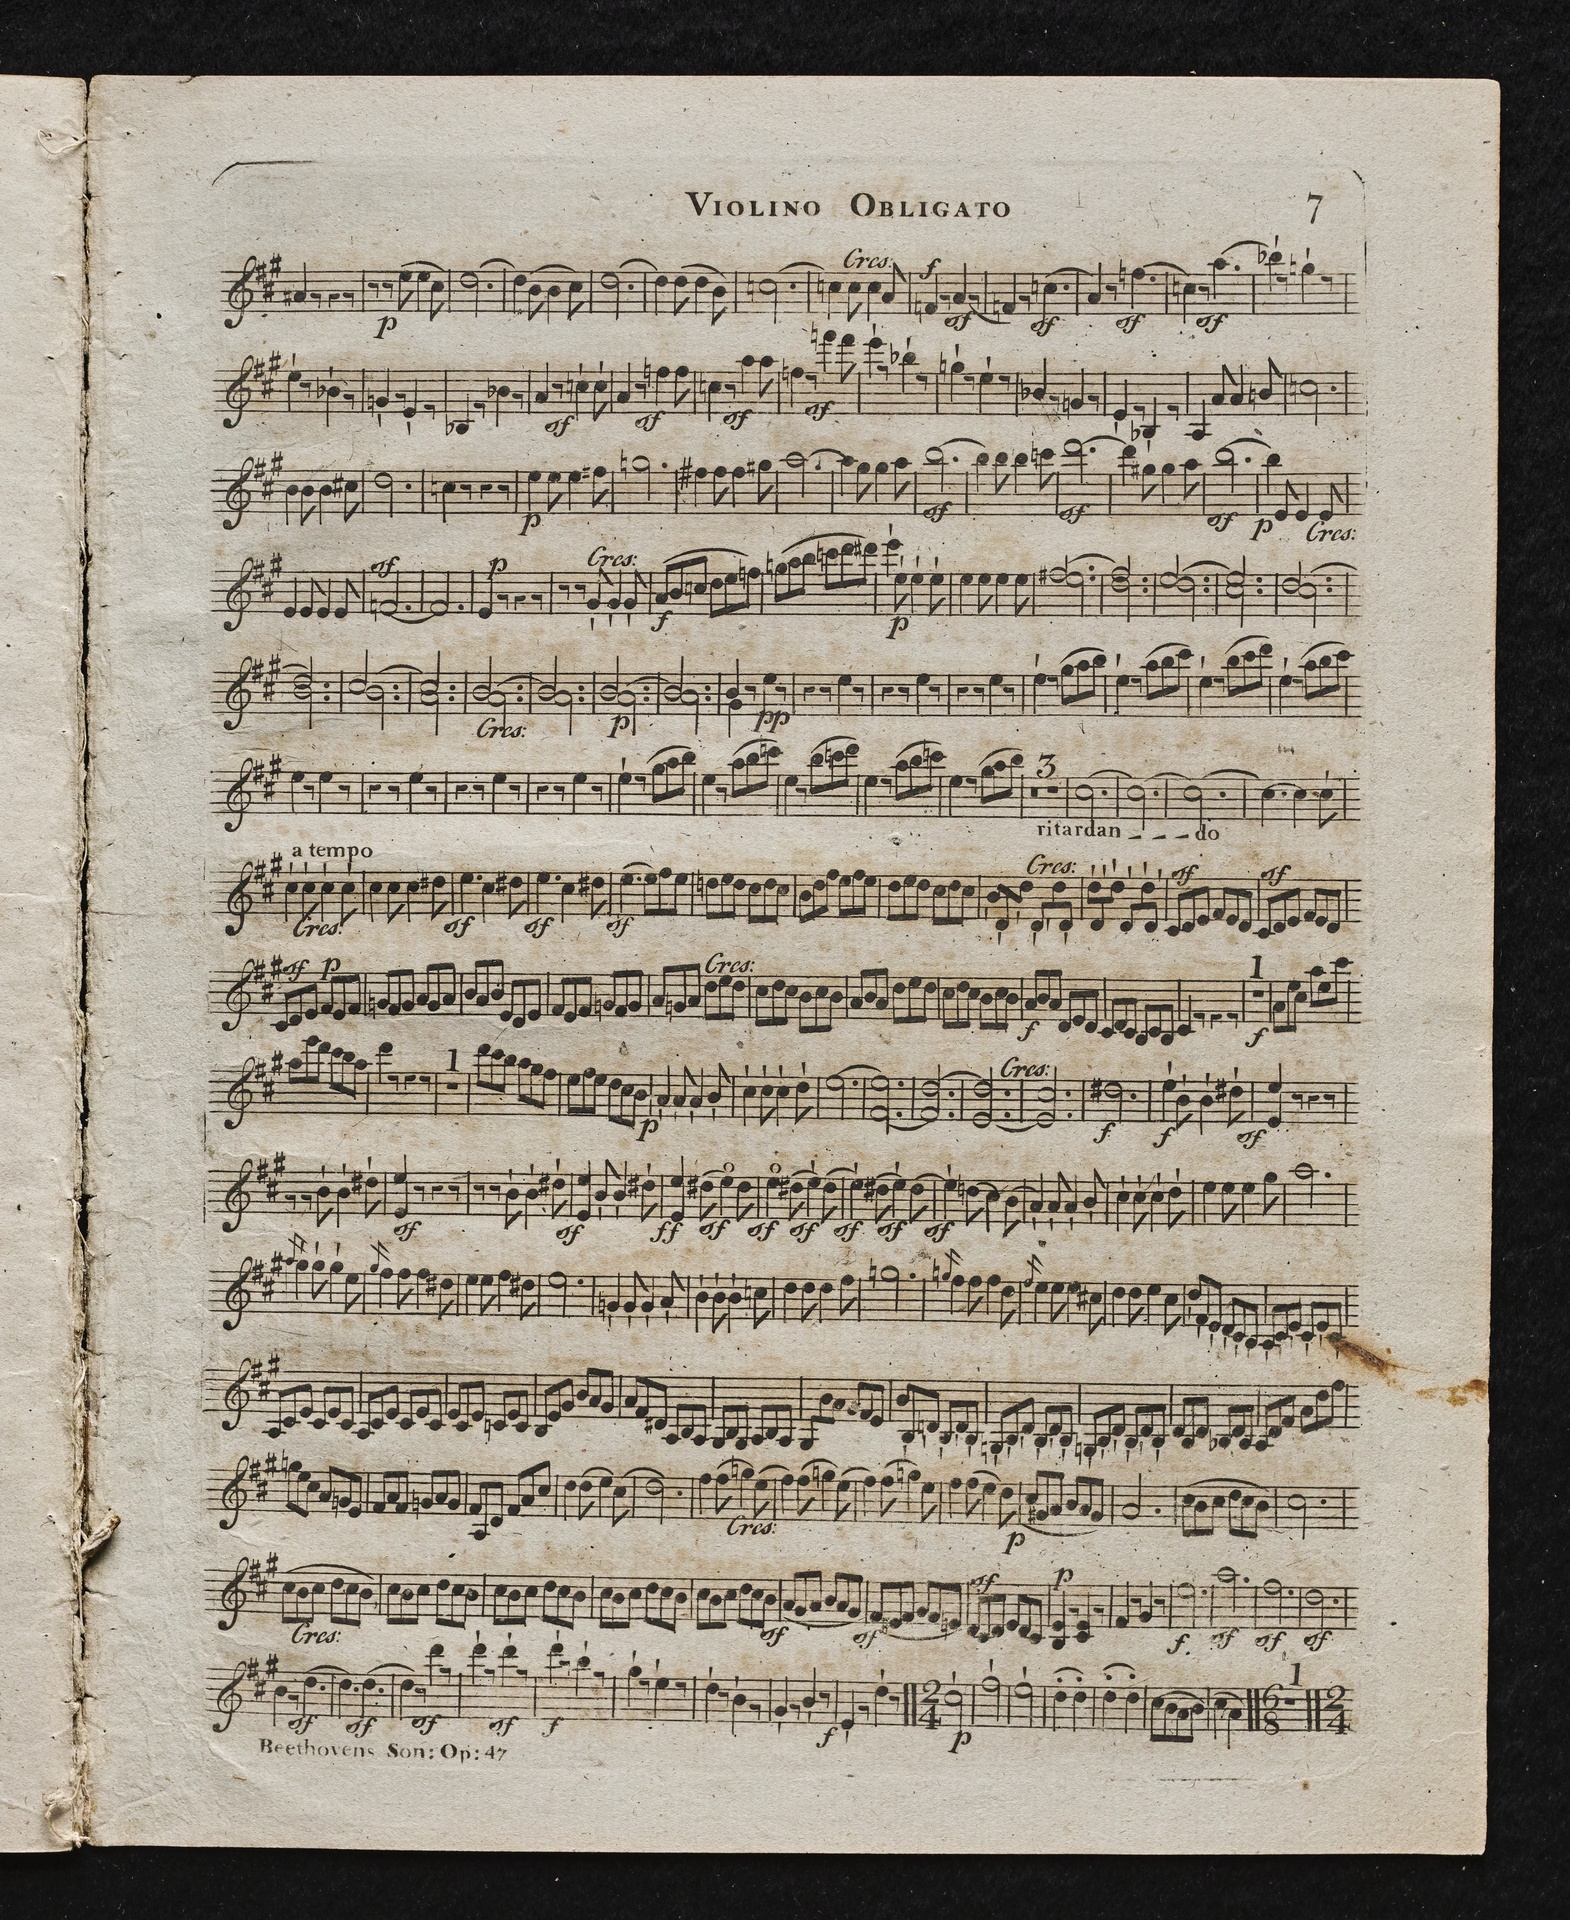 VIOLINO OBLIGATO 7
Cres: f
p sf sf sf sf
sf sf sf sf
p sf sf sf p Cres:
sf p Cres:
f p
Cres: p pp
3
ritardan - - - do
a tempo
Cres: sf sf
Cres: sf sf sf
sf p Cres: 1
f f
1 Cres:
p f f sf
sf sf ff sf sf sf sf sf sf
Cres: p
sf p
Cres: sf sf f sf sf sf
1
2 4 6 8 2 4
sf sf sf sf f f p
Beethovens Son: Op: 47